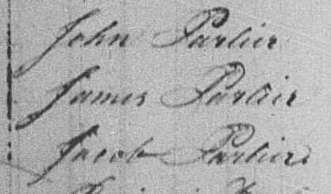 John Parlier
James Parlier
Jacob Parlier